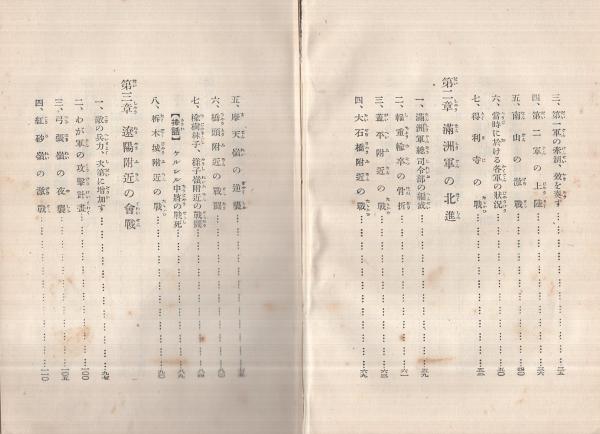 三、第一軍の牽制、效を奏す……三五
四、第二軍の上陸……三六
五、南山の激戰……四〇
六、當時に於ける各軍の狀況……
七、得利寺の戰……五三
第二章 滿洲軍の北進
一、滿洲軍總司令部の編成……五九
二、輜重輸卒の骨折……六一
三、蓋平附近の戰……六三
四、大石橋附近の戰……六九
五、摩天嶺の逆襲……
六、橋頭附近の戰鬪……
七、楡樹林子、樣子嶺附近の戰鬪……八四
【揷話】ケルレル中將の戰死……八九
八、析木城附近の戰……九〇
第三章 遼陽附近の會戰
一、敵の兵力、次第に增加す……九七
二、わが軍の攻擊計畫……一〇〇
三、弓張嶺の夜襲……一〇五
四、紅砂嶺の激戰……一一〇